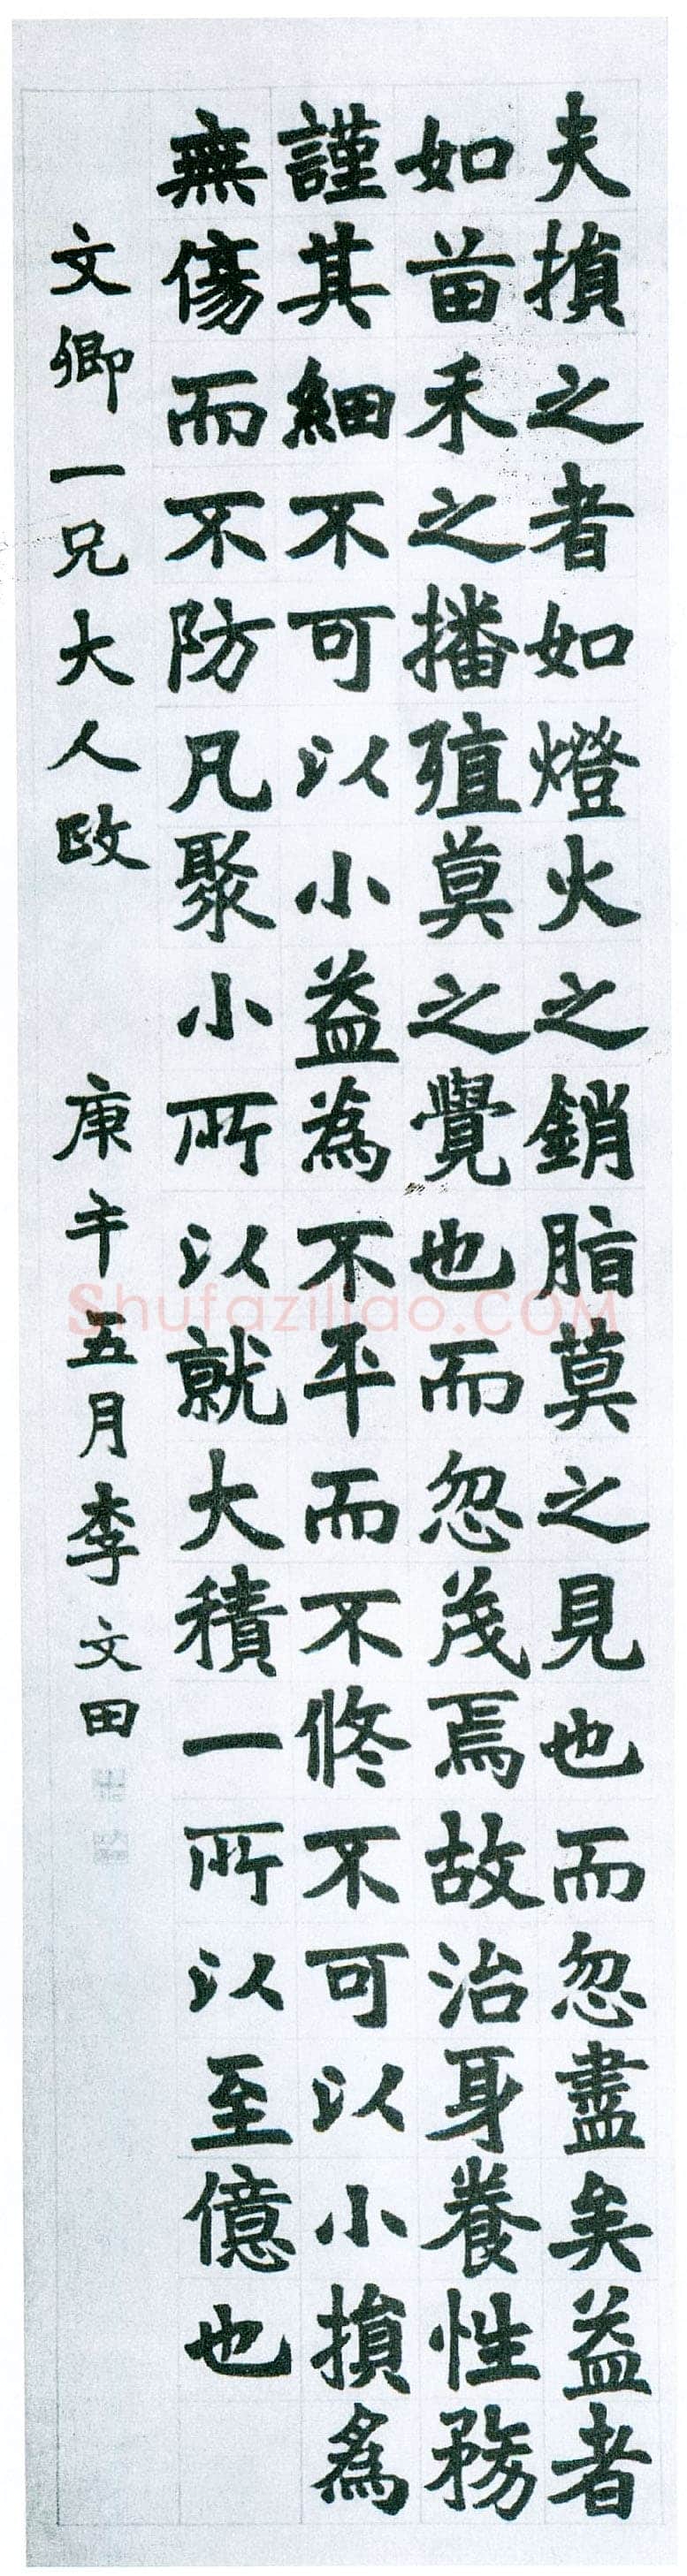 夫損之者如燈火之銷脂莫之見也而忽盡矣益者
如苗禾之播殖莫之覺也而忽茂焉故治身養性務
謹其細不可以小益為不平而不修不可以小損為
無傷而不防凡聚小所以就大積一所以至億也
文卿一兄大人政
庚午五月李文田
Shufaziliao.COM